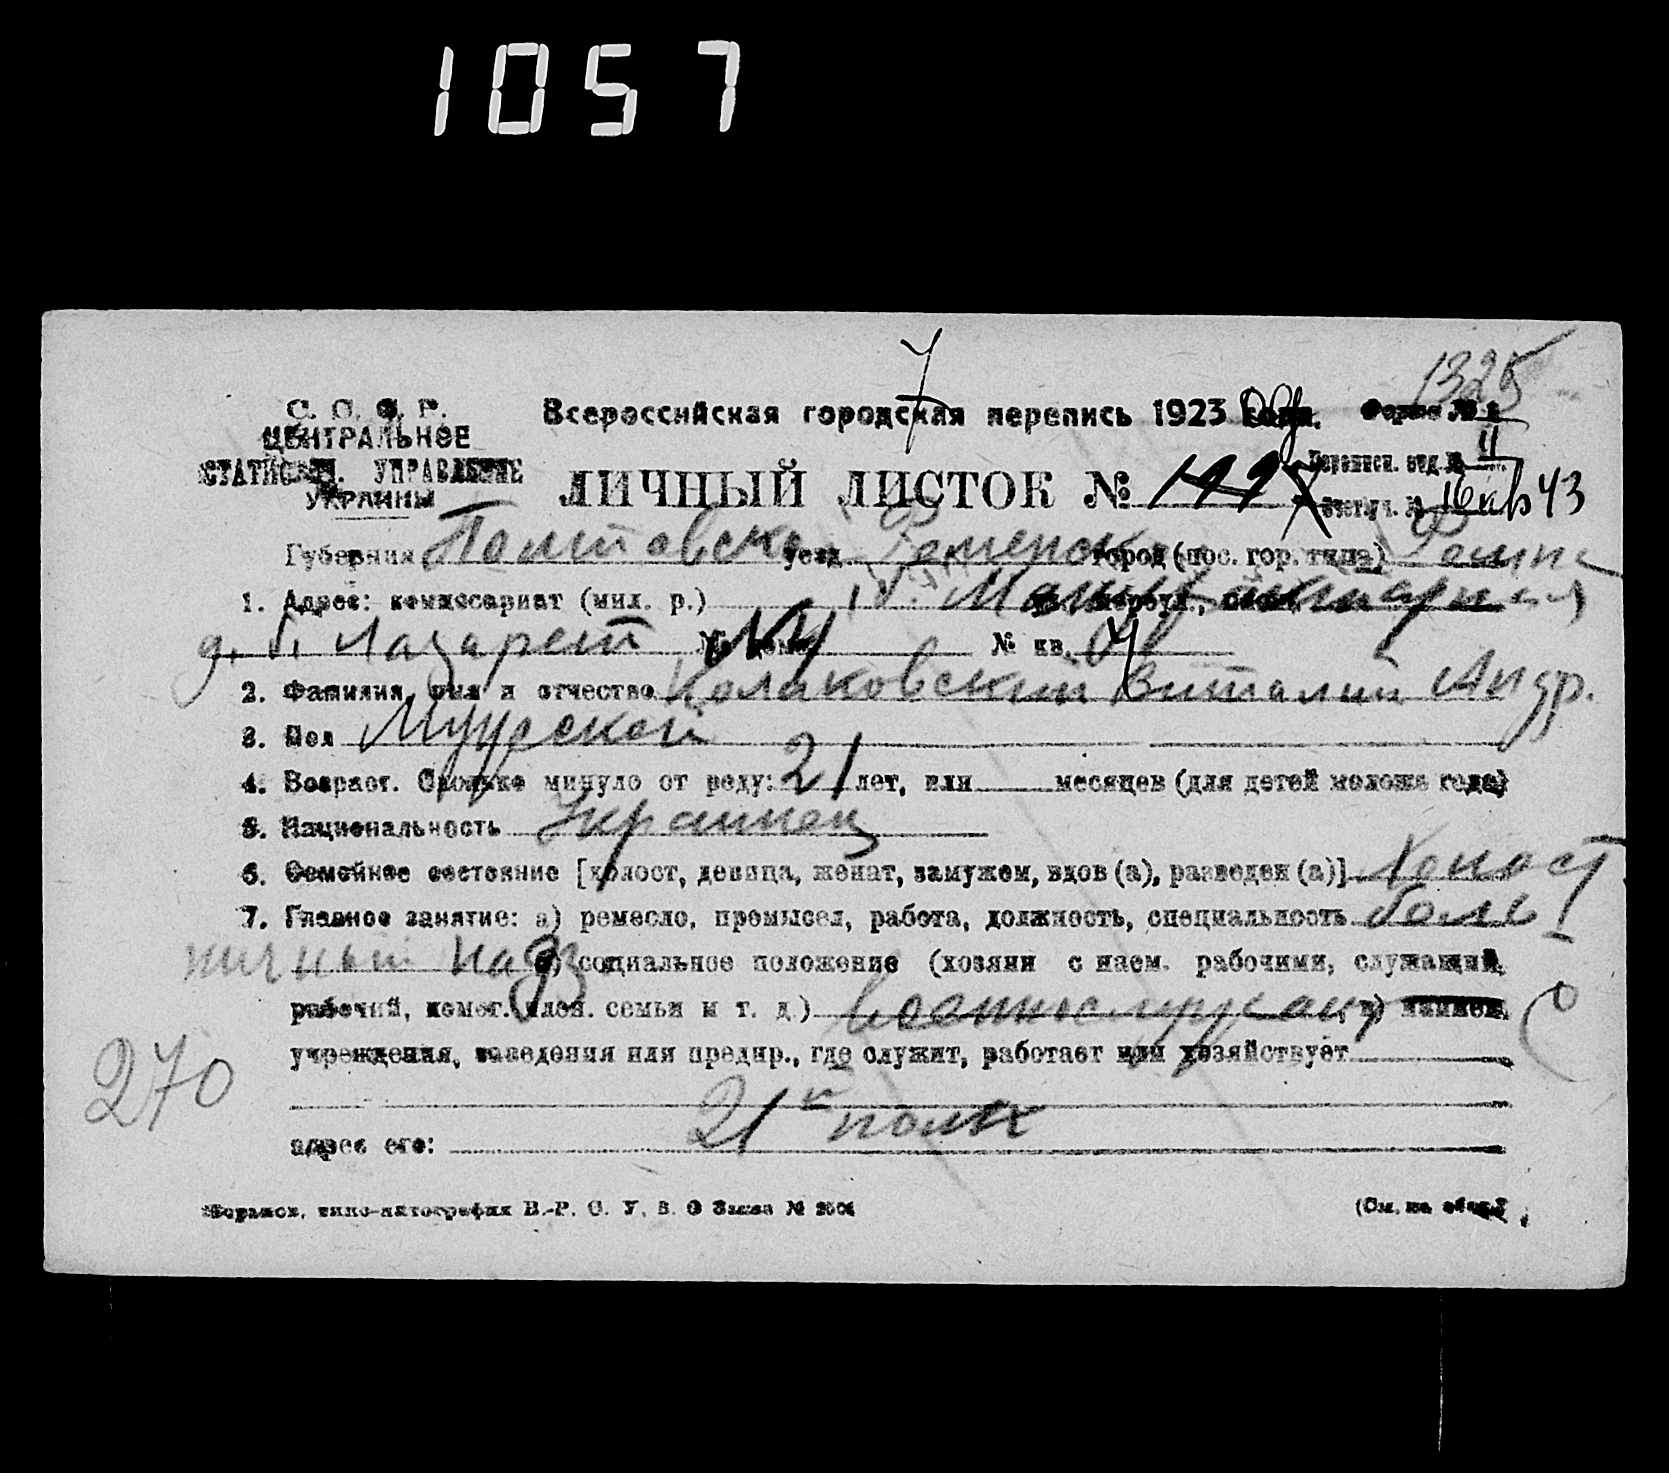 1057
1325
7
С. С. С. Р.
ЦЕНТРАЛЬНОЕ
СТАТИСТИЧ. УПРАВЛЕНИЕ
УКРАИНЫ
Всероссийская городская перепись 1923 года. Форма № 2
Переписн. отд. № 4
ЛИЧНЫЙ ЛИСТОК №
43
Губерния Полтавска уезд Роменск город (пос. гор. типа) Ромны
1. Адрес: комиссариат (мил. р.)
д. б. Лазарет № дома № кв.
2. Фамилия, имя и отчество Колаковский Виталий Андр.
3. Пол Мужской
4. Возраст. Сколько минуло от роду: 21 лет, или месяцев (для детей моложе года)
5. Национальность Украинец
6. Семейное состояние [холост, девица, женат, замужем, вдов (а), разведен (а)] Холост
7. Главное занятие: а) ремесло, промысел, работа, должность, специальность боль
ничный надз б) социальное положение (хозяин с наем. рабочими, служащий,
рабочий, помог. член. семьи и т. д.) военнослужащ в) наимен.
учреждения, заведения или предпр., где служит, работает или хозяйствует
270
21й полк
адрес его:
типо-литография В.-Р. С. У. В. О Заказ №
(См. на обор.)